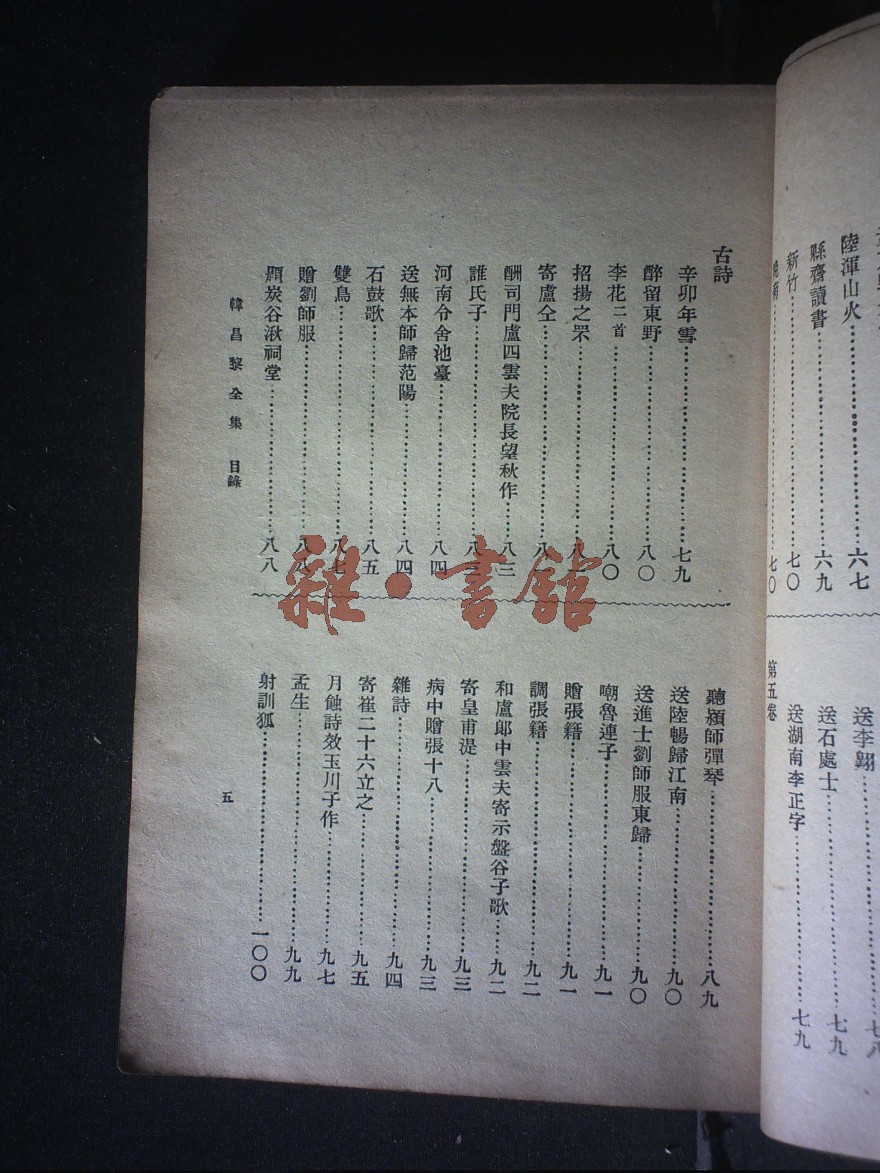 陸渾山火……六七
縣齋讀書……六九
新竹……七〇
七〇
第五卷
送李翱……七八
送石處士……七九
送湖南李正字……七九
古詩
辛卯年雪……七九
醉留東野……八〇
李花二首……八〇
招揚之罘……八
寄盧仝……八
酬司門盧四雲夫院長望秋作……八三
誰氏子……八三
河南令舍池臺……八四
送無本師歸范陽……八四
石鼓歌……八五
雙鳥……八七
贈劉師服……八八
題炭谷湫祠堂……八八
聽潁師彈琴……八九
送陸暢歸江南……九〇
送進士劉師服東歸……九〇
嘲魯連子……九一
贈張籍……九一
調張籍……九二
和盧郎中雲夫寄示盤谷子歌……九二
寄皇甫湜……九三
病中贈張十八……九三
雜詩……九四
寄崔二十六立之……九五
月蝕詩效玉川子作……九七
孟生……九九
射訓狐……一〇〇
韓昌黎全集 目錄
五
雜·書館